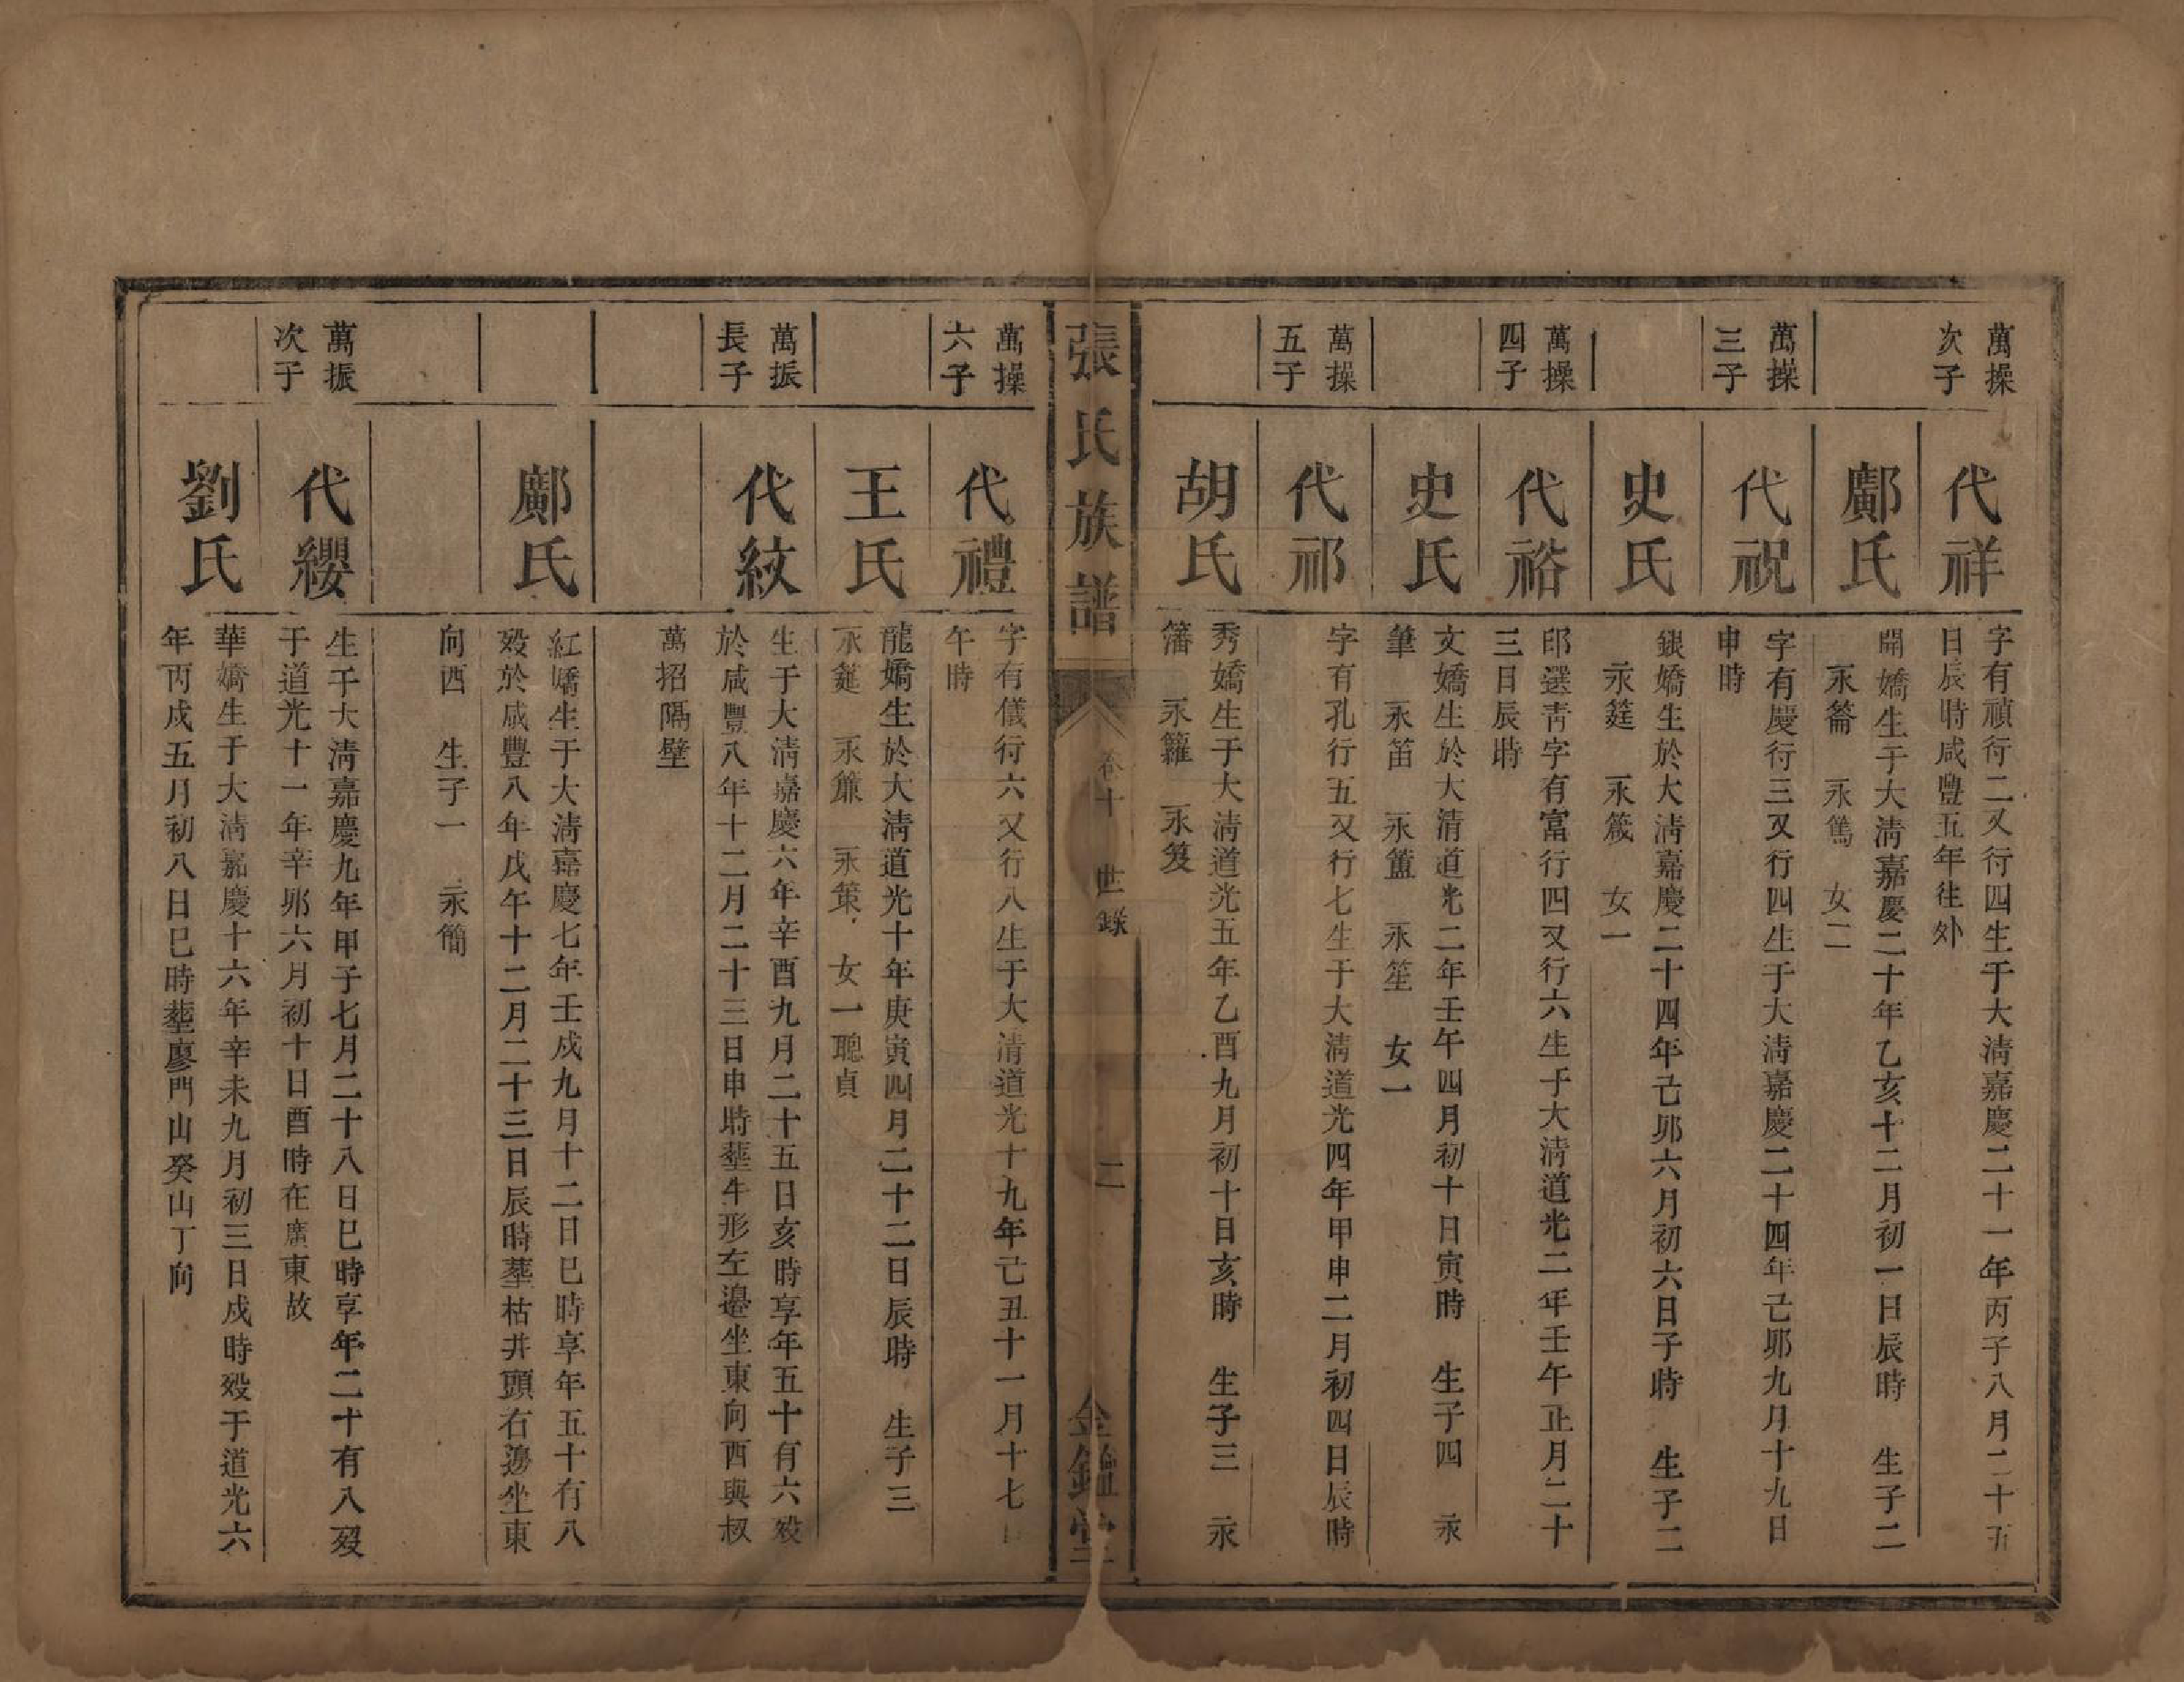 萬操
次子
代祥
字有禎行二又行四生于大淸嘉慶二十一年丙子八月二十五
日辰時咸豐五年往外
鄺氏
開嬌生于大淸嘉慶二十年乙亥十二月初一日辰時 生子二
永籥 永篤 女二
萬操
三子
代祝
字有慶行三又行四生于大淸嘉慶二十四年己邜九月十九日
申時
史氏
銀嬌生於大淸嘉慶二十四年己邜六月初六日子時 生子二
永筵 永箴 女一
萬操
四子
代裕
郎選靑字有富行四又行六生于大淸道光二年壬午正月二十
三日辰時
史氏
文嬌生於大淸道光二年壬午四月初十日寅時 生子四 永
筆 永笛 永簠 永笙 女一
萬操
五子
代祁
字有孔行五又行七生于大淸道光四年甲申二月初四日辰時
胡氏
秀嬌生于大淸道光五年乙酉九月初十日亥時 生子三 永
籓 永籮 永笈
張氏族譜
卷十 世錄
二
金鑑堂
萬操
六子
代禮
字有儀行六又行八生于大淸道光十九年己丑十一月十七日
午時
王氏
龍嬌生於大淸道光十年庚寅四月二十二日辰時 生子三
永筵 永簾 永策 女一聰貞
萬振
長子
代紋
生于大淸嘉慶六年辛酉九月二十五日亥時享年五十有六歿
於咸豐八年十二月二十三日申時塟牛形左邉坐東向西與叔
萬招隔壁
鄺氏
紅嬌生于大淸嘉慶七年壬戌九月十二日巳時享年五十有八
歿於咸豐八年戊午十二月二十三日辰時塟枯井頭右邉坐東
向西 生子一 永簡
萬振
次子
代纓
生于大淸嘉慶九年甲子七月二十八日巳時享年二十有八歿
于道光十一年辛邜六月初十日酉時在廣東故
劉氏
華嬌生于大淸嘉慶十六年辛未九月初三日戌時歿于道光六
年丙戌五月初八日巳時塟廖門山癸山丁向